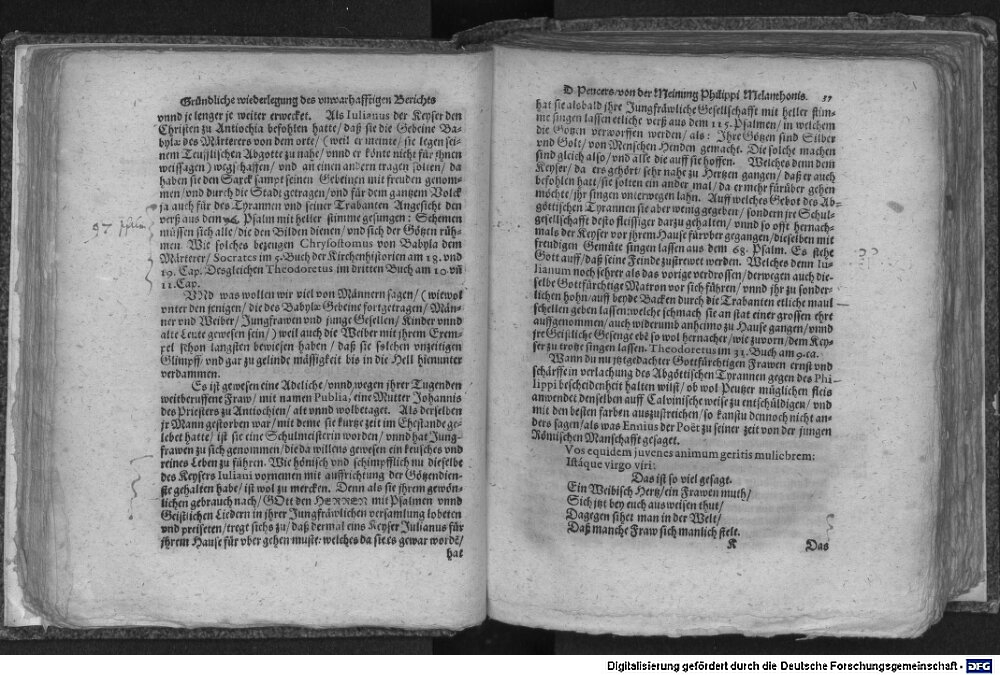 Gründliche wiederlegung des vnwarhafftigen Berichts
vnnd je lenger je weiter erwecket. Als Iulianus der Keyser den
Christen zu Antiochia befohlen hatte/ daß sie die Gebeine Ba-
bylæ des Märterers von dem orte/ (weil er meinte/ sie legen sei-
nem Teufflischen Abgotte zu nahe/ vnnd er könte nicht für jhnen
weissagen) wegschaffen/ vnd an einen andern tragen solten/ da
haben sie den Sarck sampt seinen Gebeinen mit freuden genom-
men/ vnd durch die Stadt getragen/ vnd für dem gantzem Volck
ja auch für des Tyrannen vnd seiner Trabanten Angesicht den
verß aus dem Psalm mit heller stimme gesungen: Schemen
müssen sich alle/ die den Bilden dienen/ vnd sich der Götzen rüh-
men. Wie solches bezeugen Chrysostomus von Babyla dem
Märterer/ Socrates im 5. Buch der Kirchenhistorien am 18. vnd
19. Cap. Desgleichen Theodoretus im dritten Buch am 10 vñ
11. Cap.
97 Psalm
VNd was wollen wir viel von Männern sagen/ (wiewol
vnter den jenigen/ die des Babylæ Gebeine fortgetragen/ Män-
ner vnd Weiber/ Jungfrawen vnd junge Gesellen/ Kinder vnnd
alte Leute gewesen sein/) weil auch die Weiber mit jhrem Exem-
pel schon langsten bewiesen haben/ daß sie solchen vnzeitigen
Glimpff/ vnd gar zu gelinde mässigkeit bis in die Hell hienunter
verdammen.
Es ist gewesen eine Adeliche/ vnnd wegen jhrer Tugenden
weitberuffene Fraw/ mit namen Publia, eine Mutter Johannis
des Priesters zu Antiochien/ alt vnnd wolbetaget. Als derselben
jr Mann gestorben war/ mit deme sie kurtze zeit im Ehestande ge-
lebet hatte/ ist sie eine Schulmeisterin worden/ vnnd hat Jung-
frawen zu sich genommen/ die da willens gewesen ein keusches vnd
reines Leben zu führen. Wie hönisch vnd schimpfflich nu dieselbe
des Keysers Iuliani vornemen mit auffrichtung der Götzendien-
ste gehalten habe/ ist wol zu mercken. Denn als sie jhrem gewön-
lichen gebrauch nach/ GOtt den HERREN mit Psalmen vnnd
Geistlichen Liedern in jhrer Jungfräwlichen versamlung lobeten
vnd preiseten/ tregt sichs zu/ daß dermal eins Keyser Julianus für
jhrem Hause für vber gehen muste: welches da sie es gewar wordē/
hat
D Peucers/ von der Meinung Philippi Melanthonis. 37
hat sie alsbald jhre Jungfräwliche Gesellschafft mit heller stim-
me singen lassen etliche verß aus dem 115. Psalmen/ in welchem
die Götzen verworffen werden/ als: Jhre Götzen sind Silber
vnd Golt/ von Menschen Henden gemacht. Die solche machen
sind gleich also/ vnd alle die auff sie hoffen. Welches denn dem
Keyser/ da ers gehört/ sehr nahe zu Hertzen gangen/ daß er auch
befohlen hatt/ sie solten ein ander mal/ da er mehr fürüber gehen
möchte/ jhr singen vnterwegen lahn. Auff welches Gebot des Ab-
göttischen Tyrannen sie aber wenig gegeben/ sondern jre Schul-
gesellschafft desto fleissiger darzu gehalten/ vnnd so offt hernach-
mals der Keyser vor jhrem Hause fürvber gegangen/ dieselben mit
freudigen Gemüte singen lassen aus dem 68. Psalm. Es stehe
Gott auff/ daß seine Feinde zustrewet werden. Welches denn Iu-
lianum noch sehrer als das vorige verdrossen/ derwegen auch die-
selbe Gottfürchtige Matron vor sich führen/ vnnd jhr zu sonder-
lichen hohn/ auff beyde Backen durch die Trabanten etliche maul
schellen geben lassen: welche schmach sie an stat einer grossen ehre
auffgenommen/ auch widerumb anheims zu Hause gangen/ vnnd
jre Geistliche Gesenge ebē so wol hernacher/ wie zuvorn/ dem Key-
ser zu trotze singen lassen. Theodoretus im 31. Buch am 9. ca.
Wann du nu itzgedachter Gottfürchtigen Frawen ernst vnd
schärffe in verlachung des Abgöttischen Tyrannen gegen des Phi-
lippi bescheidenheit halten wilst/ ob wol Peutzer müglichen fleis
anwendet denselben auff Calvinische weise zu entschüldigen/ vnd
mit den besten farben auszustreichen/ so kanstu dennoch nicht an-
ders sagen/ als was Ennius der Poët zu seiner zeit von der jungen
Römischen Manschafft gesaget.
Vos equidem juvenes animum geritis muliebrem:
Istáque virgo viri:
Das ist so viel gesagt.
Ein Weibisch Hertz/ ein Frawen muth/
Sich itzt bey euch ausweisen thut/
Dagegen sihet man in der Welt/
Daß manche Fraw sich manlich stelt.
K Das
Digitalisierung gefördert durch die Deutsche Forschungsgemeinschaft - DFG